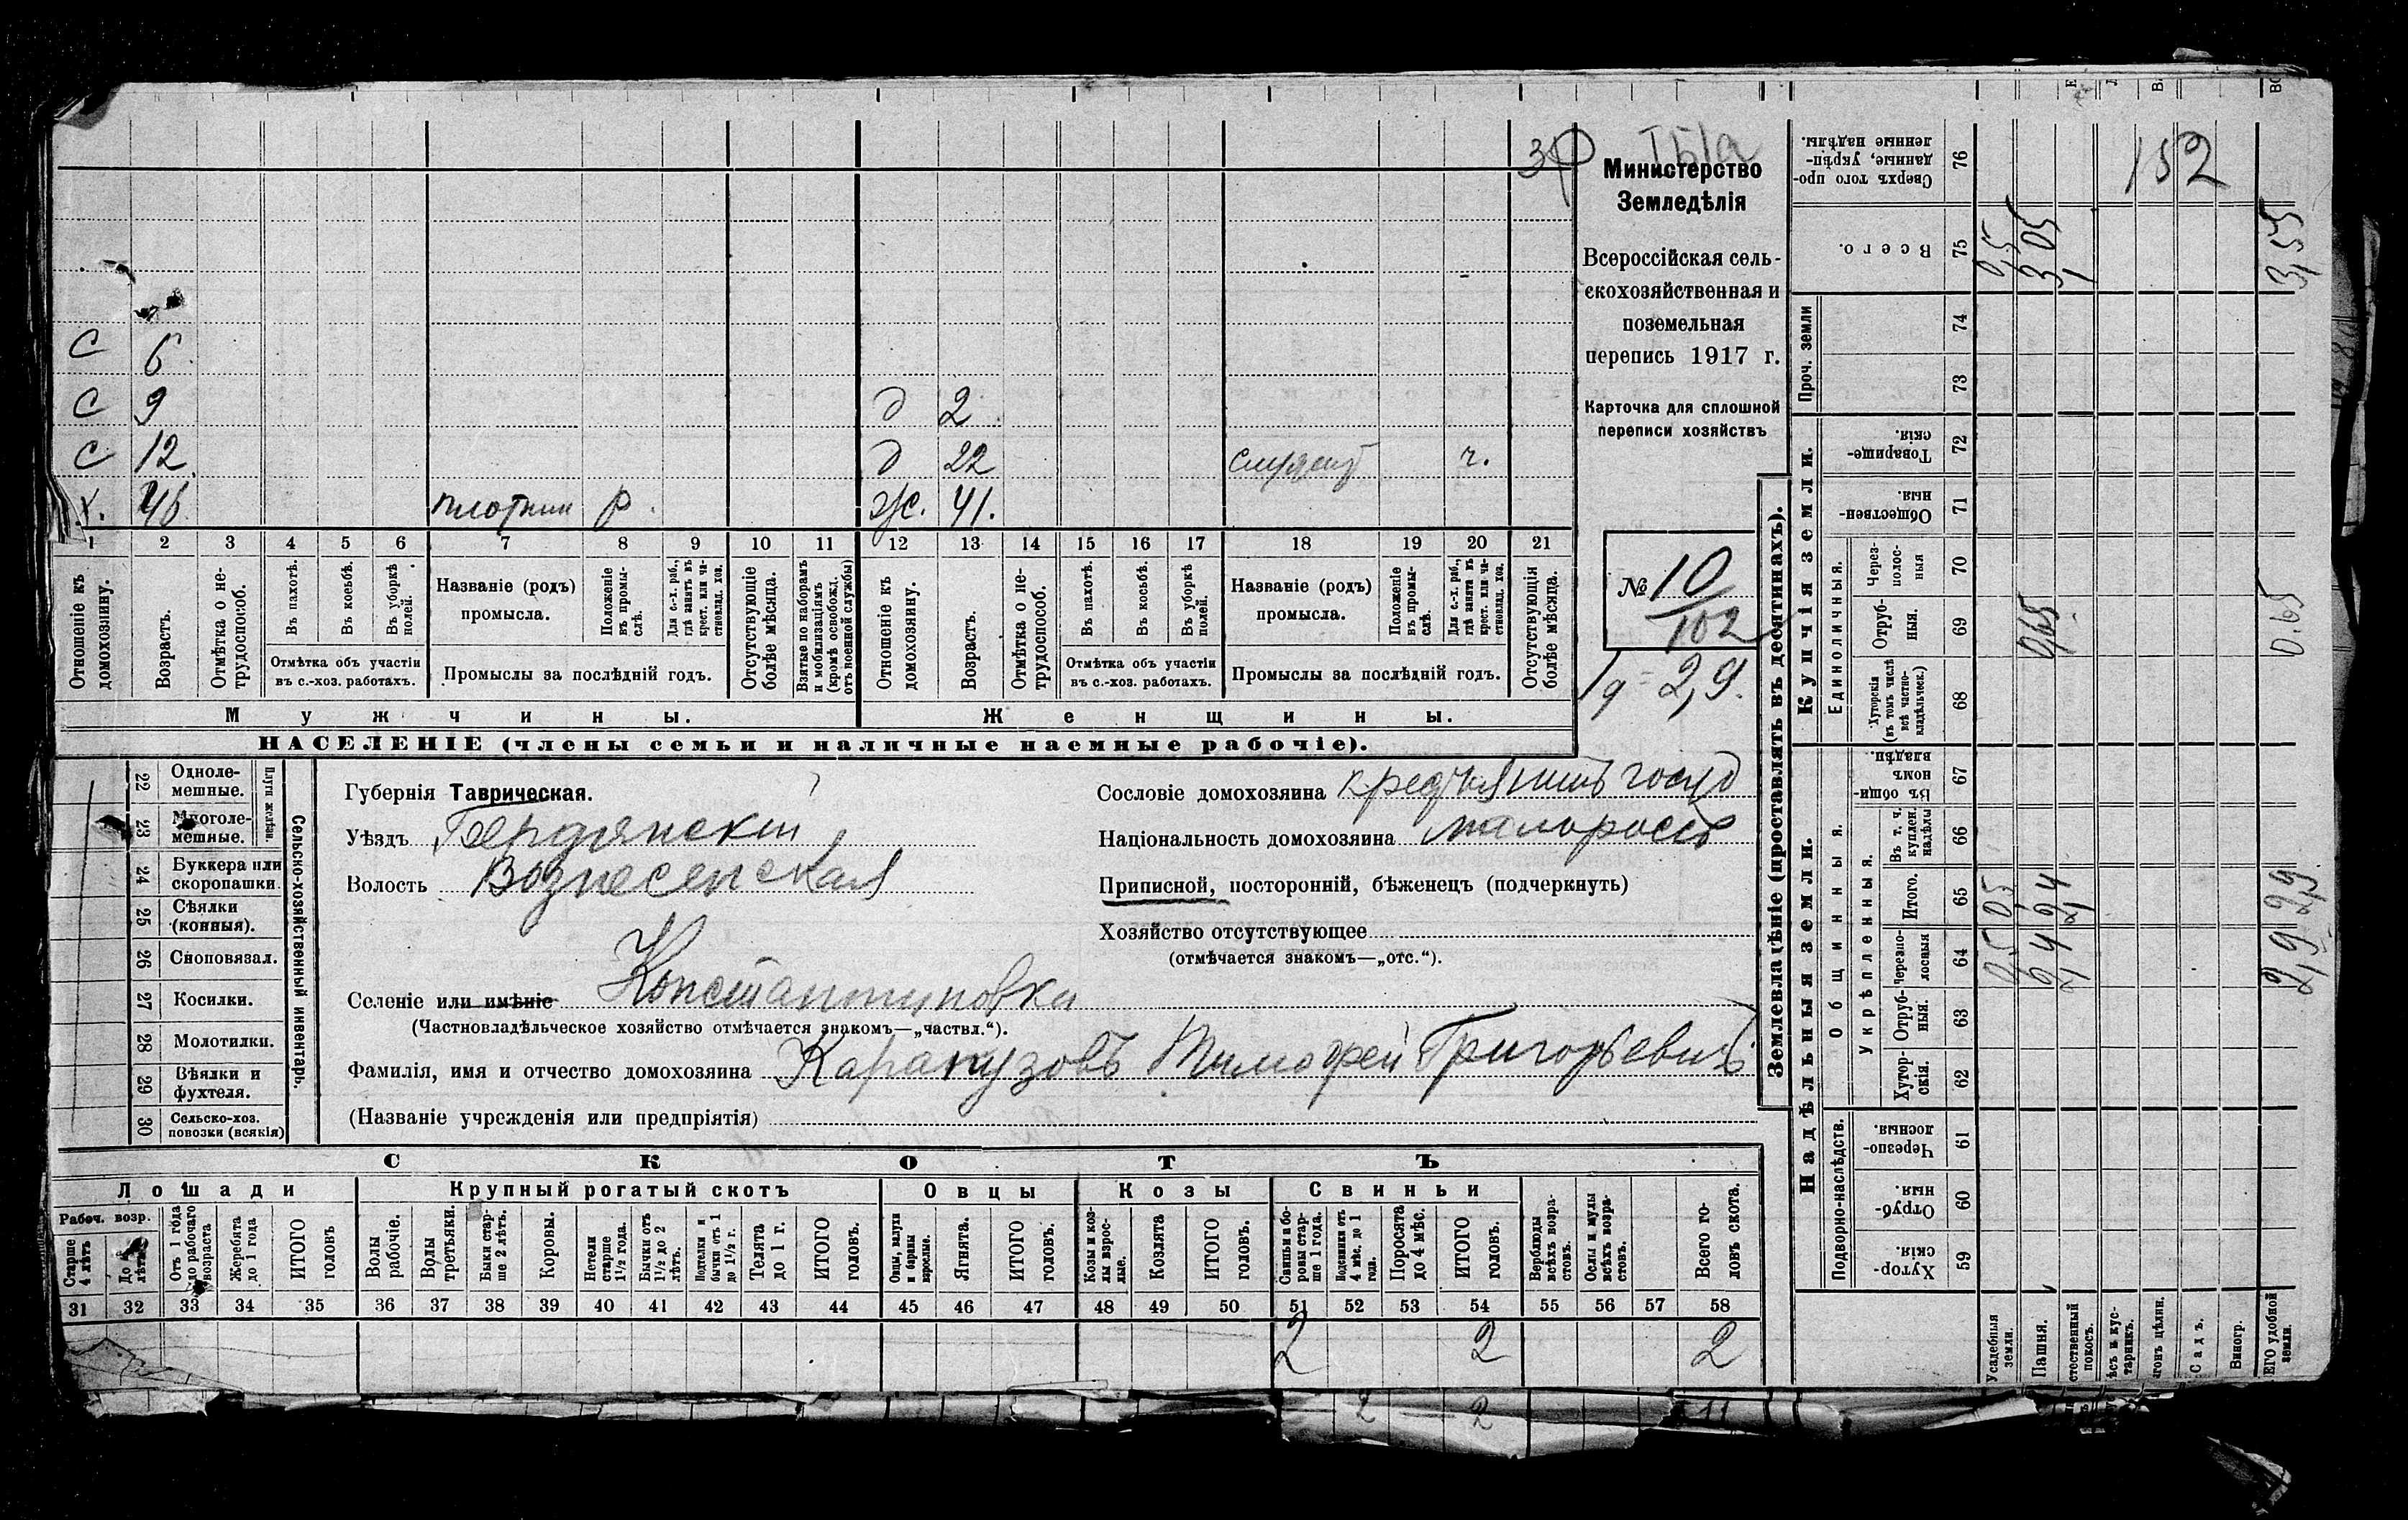 Министерство
Земледѣлія
Всероссійская сель-
скохозяйственная и
поземельная
перепись 1917 г.
Карточка для сплошной
переписи хозяйствъ
№ 10
102
С 6
С 9 д 2
С 12 д 22 ч.
х. 46 плотник р. ж. 41.
1 2 3 4 5 6 7 8 9 10 11 12 13 14 15 16 17 18 19 20 21
Отношеніе къ домохозяину.
Возрастъ.
Отмѣтка о не-трудоспособ.
Въ пахотѣ.
Въ косьбѣ.
Въ уборкѣ полей.
Отмѣтка объ участіи въ с.-хоз. работахъ.
Названіе (родъ) промысла.
Положеніе въ промы-слѣ.
Для с.-х. раб., гдѣ занятъ въ крест. или ча-стновлад. хоз.
Промыслы за послѣдній годъ.
Отсутствующіе болѣе мѣсяца.
Взятые по наборамъ и мобилизаціямъ (кромѣ освобожд. отъ военной службы)
Отношеніе къ домохозяину.
Возрастъ.
Отмѣтка о не-трудоспособ.
Въ пахотѣ.
Въ косьбѣ.
Въ уборкѣ полей.
Отмѣтка объ участіи въ с.-хоз. работахъ.
Названіе (родъ) промысла.
Положеніе въ промы-слѣ.
Для с.-х. раб., гдѣ занятъ въ крест. или ча-стновлад. хоз.
Промыслы за послѣдній годъ.
Отсутствующія болѣе мѣсяца.
Мужчины. Женщины.
НАСЕЛЕНІЕ (члены семьи и наличные наемные рабочіе).
2,9.
Сельско-хозяйственный инвентарь.
Плуги желѣзн.
22 Одноле-мешные.
23 Многоле-мешные.
24 Буккера или скоропашки
25 Сѣялки (конныя).
26 Сноповязал.
27 Косилки.
28 Молотилки.
29 Вѣялки и фухтеля.
30 Сельско-хоз. повозки (всякія)
Губернія Таврическая.
Уѣздъ Бердянскій
Волость Вознесенская
Селеніе или имѣніе Константиновка
(Частновладѣльческое хозяйство отмѣчается знакомъ—„частвл.“).
Фамилія, имя и отчество домохозяина Карапузовъ Тимофей Григорьевич
(Названіе учрежденія или предпріятія)
Сословіе домохозяина
Національность домохозяина малороссъ
Приписной, посторонній, бѣженецъ (подчеркнуть)
Хозяйство отсутствующее
(отмѣчается знакомъ—„отс.“).
СКОТЪ
Лошади Крупный рогатый скотъ Овцы Козы Свиньи
Рабоч. возр.
Старше 4 лѣтъ
До 4 лѣтъ
Отъ 1 года до рабочаго возраста
Жеребята до 1 года
ИТОГО головъ
Волы рабочіе.
Волы третьяки.
Быки стар-ше 2 лѣтъ.
Коровы.
Нетели старше 1½ года.
Бычки отъ 1½ до 2 лѣтъ.
Подтелки и бычки отъ 1 до 1½ г.
Телята до 1 г.
ИТОГО головъ.
Овцы, валухи и бараны взрослые.
Ягнята.
ИТОГО головъ.
Козы и коз-лы взрос-лые.
Козлята
ИТОГО головъ.
Свиньи и бо-ровы стар-ше 1 года.
Подсвинки отъ 4 мѣс. до 1 года.
Поросята до 4 мѣс.
ИТОГО головъ.
Верблюды всѣхъ возра-стовъ.
Ослы и мулы всѣхъ возра-стовъ.
Всего го-ловъ скота.
31 32 33 34 35 36 37 38 39 40 41 42 43 44 45 46 47 48 49 50 51 52 53 54 55 56 57 58
2 2 2
2 2 11
Землевладѣніе (проставлять въ десятинахъ).
Надѣльныя земли. Купчія земли. Проч. земли
Подворно-наслѣдств.
Общинныя.
Укрѣпленныя.
Единоличныя.
59 Хутор-скія.
60 Отруб-ныя.
61 Черезпо-лосныя.
62 Хутор-скія.
63 Отруб-ныя.
64 Черезпо-лосныя
65 Итого.
66 Въ т. ч. куплен. надѣлы
67 Въ общи-номъ владѣн.
68 Хуторскія (въ томъ числѣ всѣ частно-владѣльческ.)
69 Отруб-ныя.
70 Через-полос-ныя
71 Обществен-ныя.
72 Товарище-скія.
73
74
75 Всего.
76 Сверхъ того про-данные, укрѣп-ленные надѣлы.
Усадебныя земли.
Пашня.
Садъ.
Виногр.
ЕГО удобной земли.
152
3,05
3,55
0,65
0.65